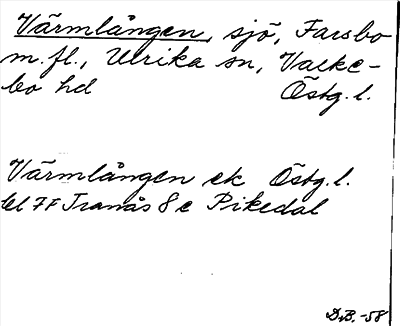 Värmlången, sjö, Farsbo
m.fl., Ulrika sn, Valke-
bo hd Östg.l.
Värmlången ek Östg.l.
bl 7F Tranås 8e Pikedal
D.B. -58